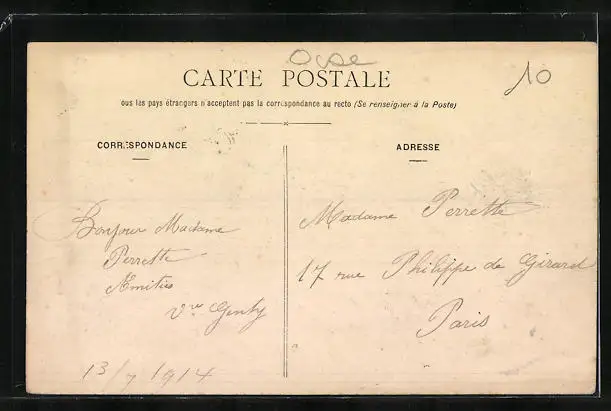 Oise
10
CARTE POSTALE
ous les pays étrangers n'acceptent pas la correspondance au recto (Se renseigner à la Poste)
CORRESPONDANCE
Bonjour Madame
Perrette
Amitiés
Vve Genty
13/7 1914
ADRESSE
Madame Perrette
17 rue Philippe de Girard
Paris